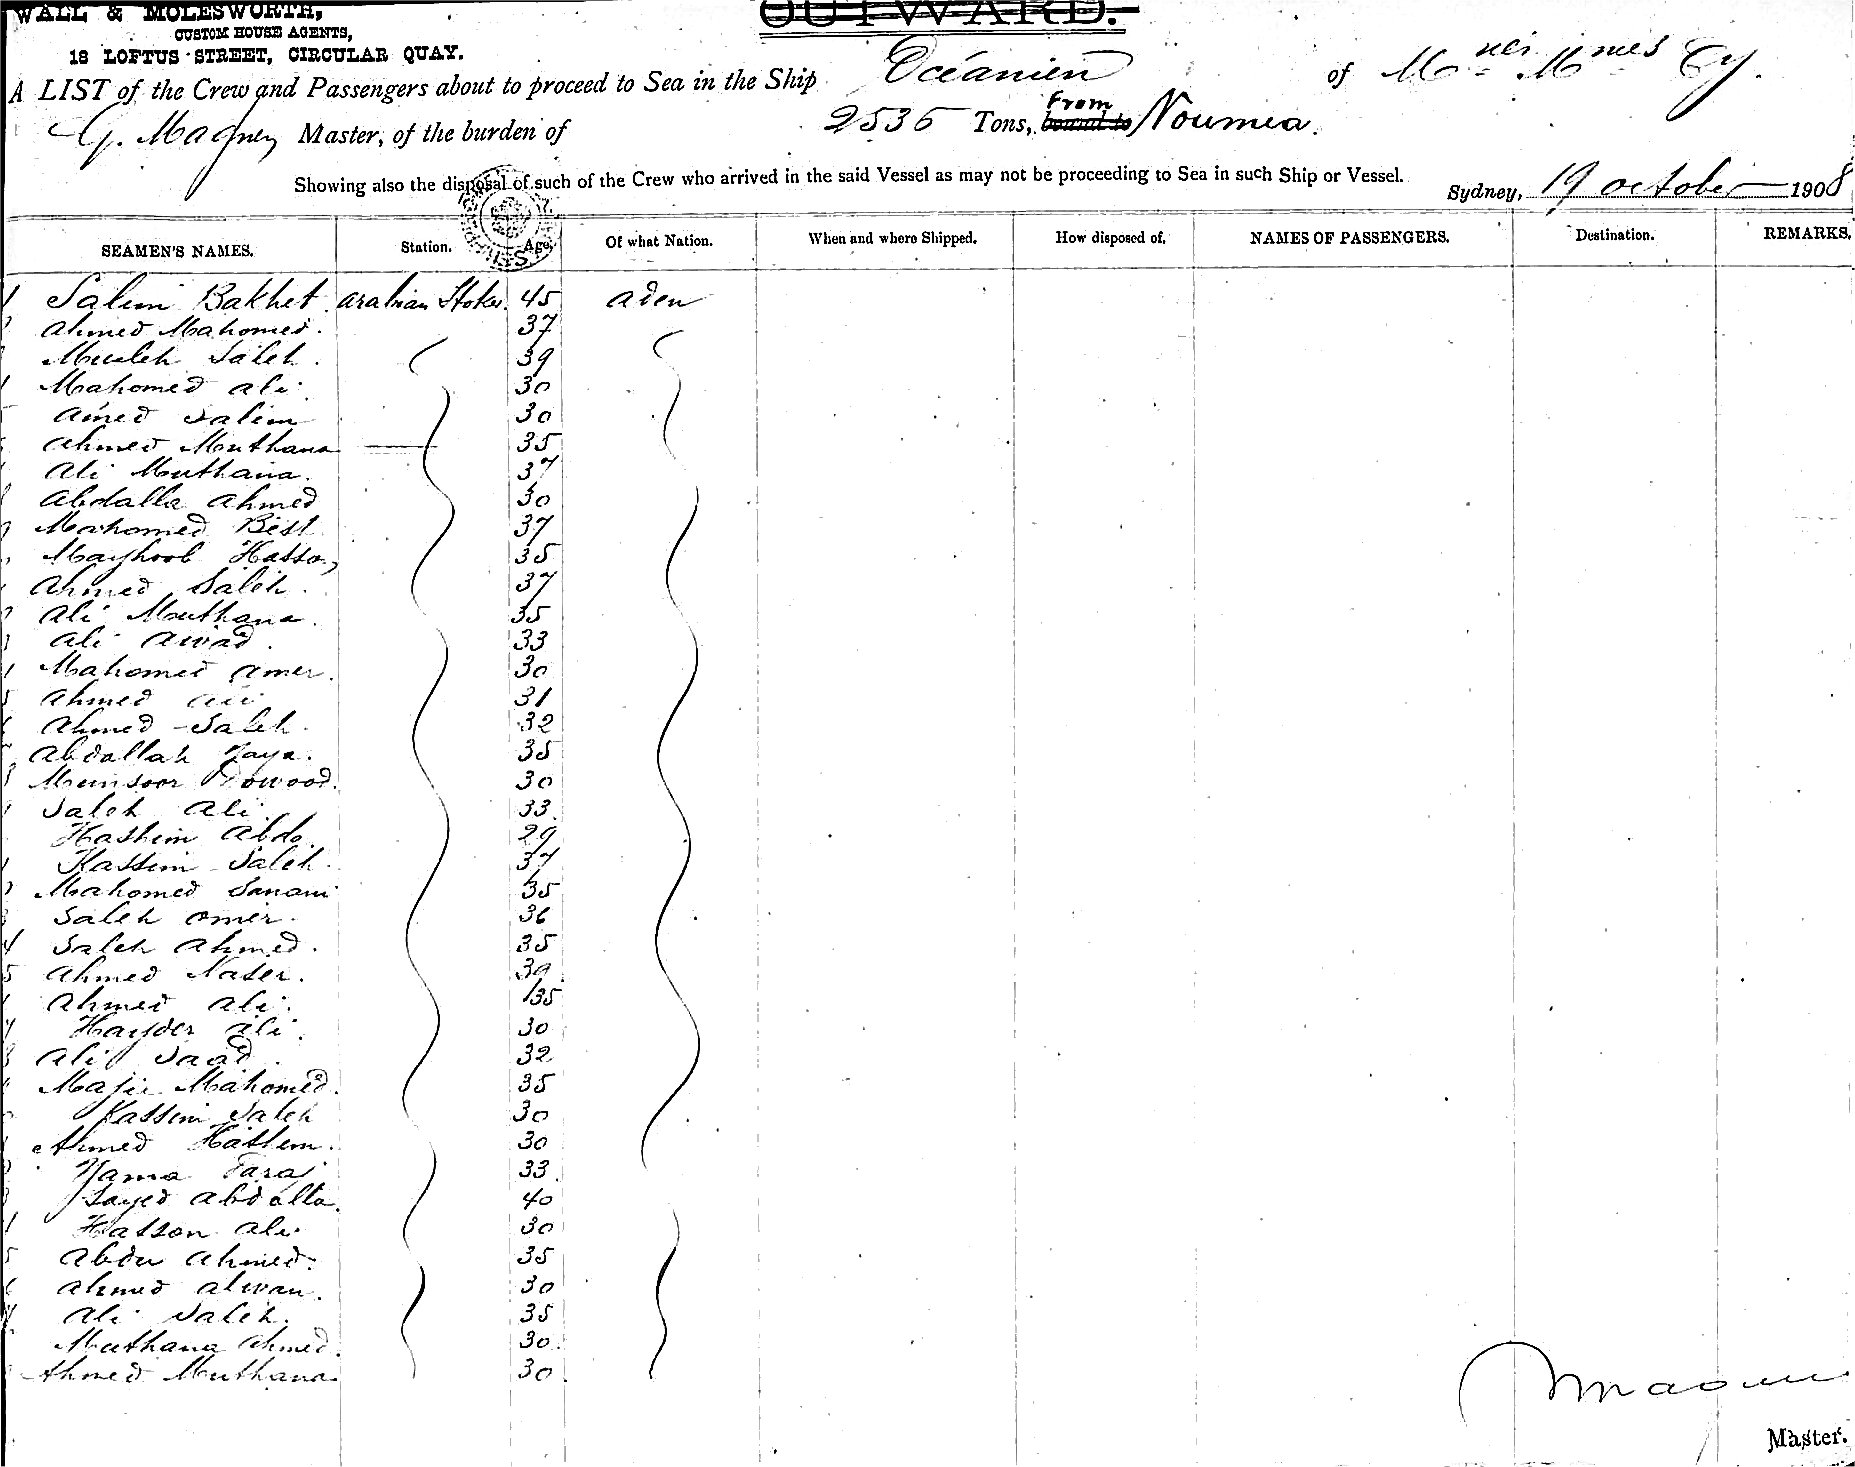 WALL & MOLESWORTH,
CUSTOM HOUSE AGENTS,
18 LOFTUS STREET, CIRCULAR QUAY.
OUTWARD.
A LIST of the Crew and Passengers about to proceed to Sea in the Ship Océanien of Mries Mmes Cy.
G. Magney Master, of the burden of 2535 Tons, bound to From Noumea.
Showing also the disposal of such of the Crew who arrived in the said Vessel as may not be proceeding to Sea in such Ship or Vessel.
Sydney, 19 october 1908
SEAMEN'S NAMES. Station. Age. Of what Nation. When and where Shipped. How disposed of. NAMES OF PASSENGERS. Destination. REMARKS.
Salim Bakhet arabian Stoker 45 aden
Ahmed Mahomed. 37
Musleh Saleh. 39
Mahomed ali. 30
Amed Salim 30
Ahmed Muthana 35
Ali Muthana. 37
Abdalla Ahmed 30
Mahomed Best 37
Mayhoob Hasson 35
Ahmed Saleh. 37
Ali Muthana. 35
Ali Awad. 33
Mahomed Amer. 30
Ahmed Ali 31
Ahmed Saleh. 32
Abdallah Yaya. 35
Munsoor Dowood. 30
Saleh Ali 33
Hashim Abdo. 29
Kassim Saleh. 37
Mahomed Sanani 35
Saleh omer. 36
Saleh Ahmed. 35
Ahmed Naser. 39
Ahmed Ali. 35
Hayder Ali. 30
Ali Saad. 32
Majie Mahomed. 35
Kassim Saleh 30
Ahmed Hassem. 30
Yama Faraj 33
Sayed Abdalla. 40
Hasson Ali 30
Abdu Ahmed. 35
Ahmed Alwan. 30
Ali Saleh. 35
Muthana Ahmed. 30
Ahmed Muthana. 30
Master.